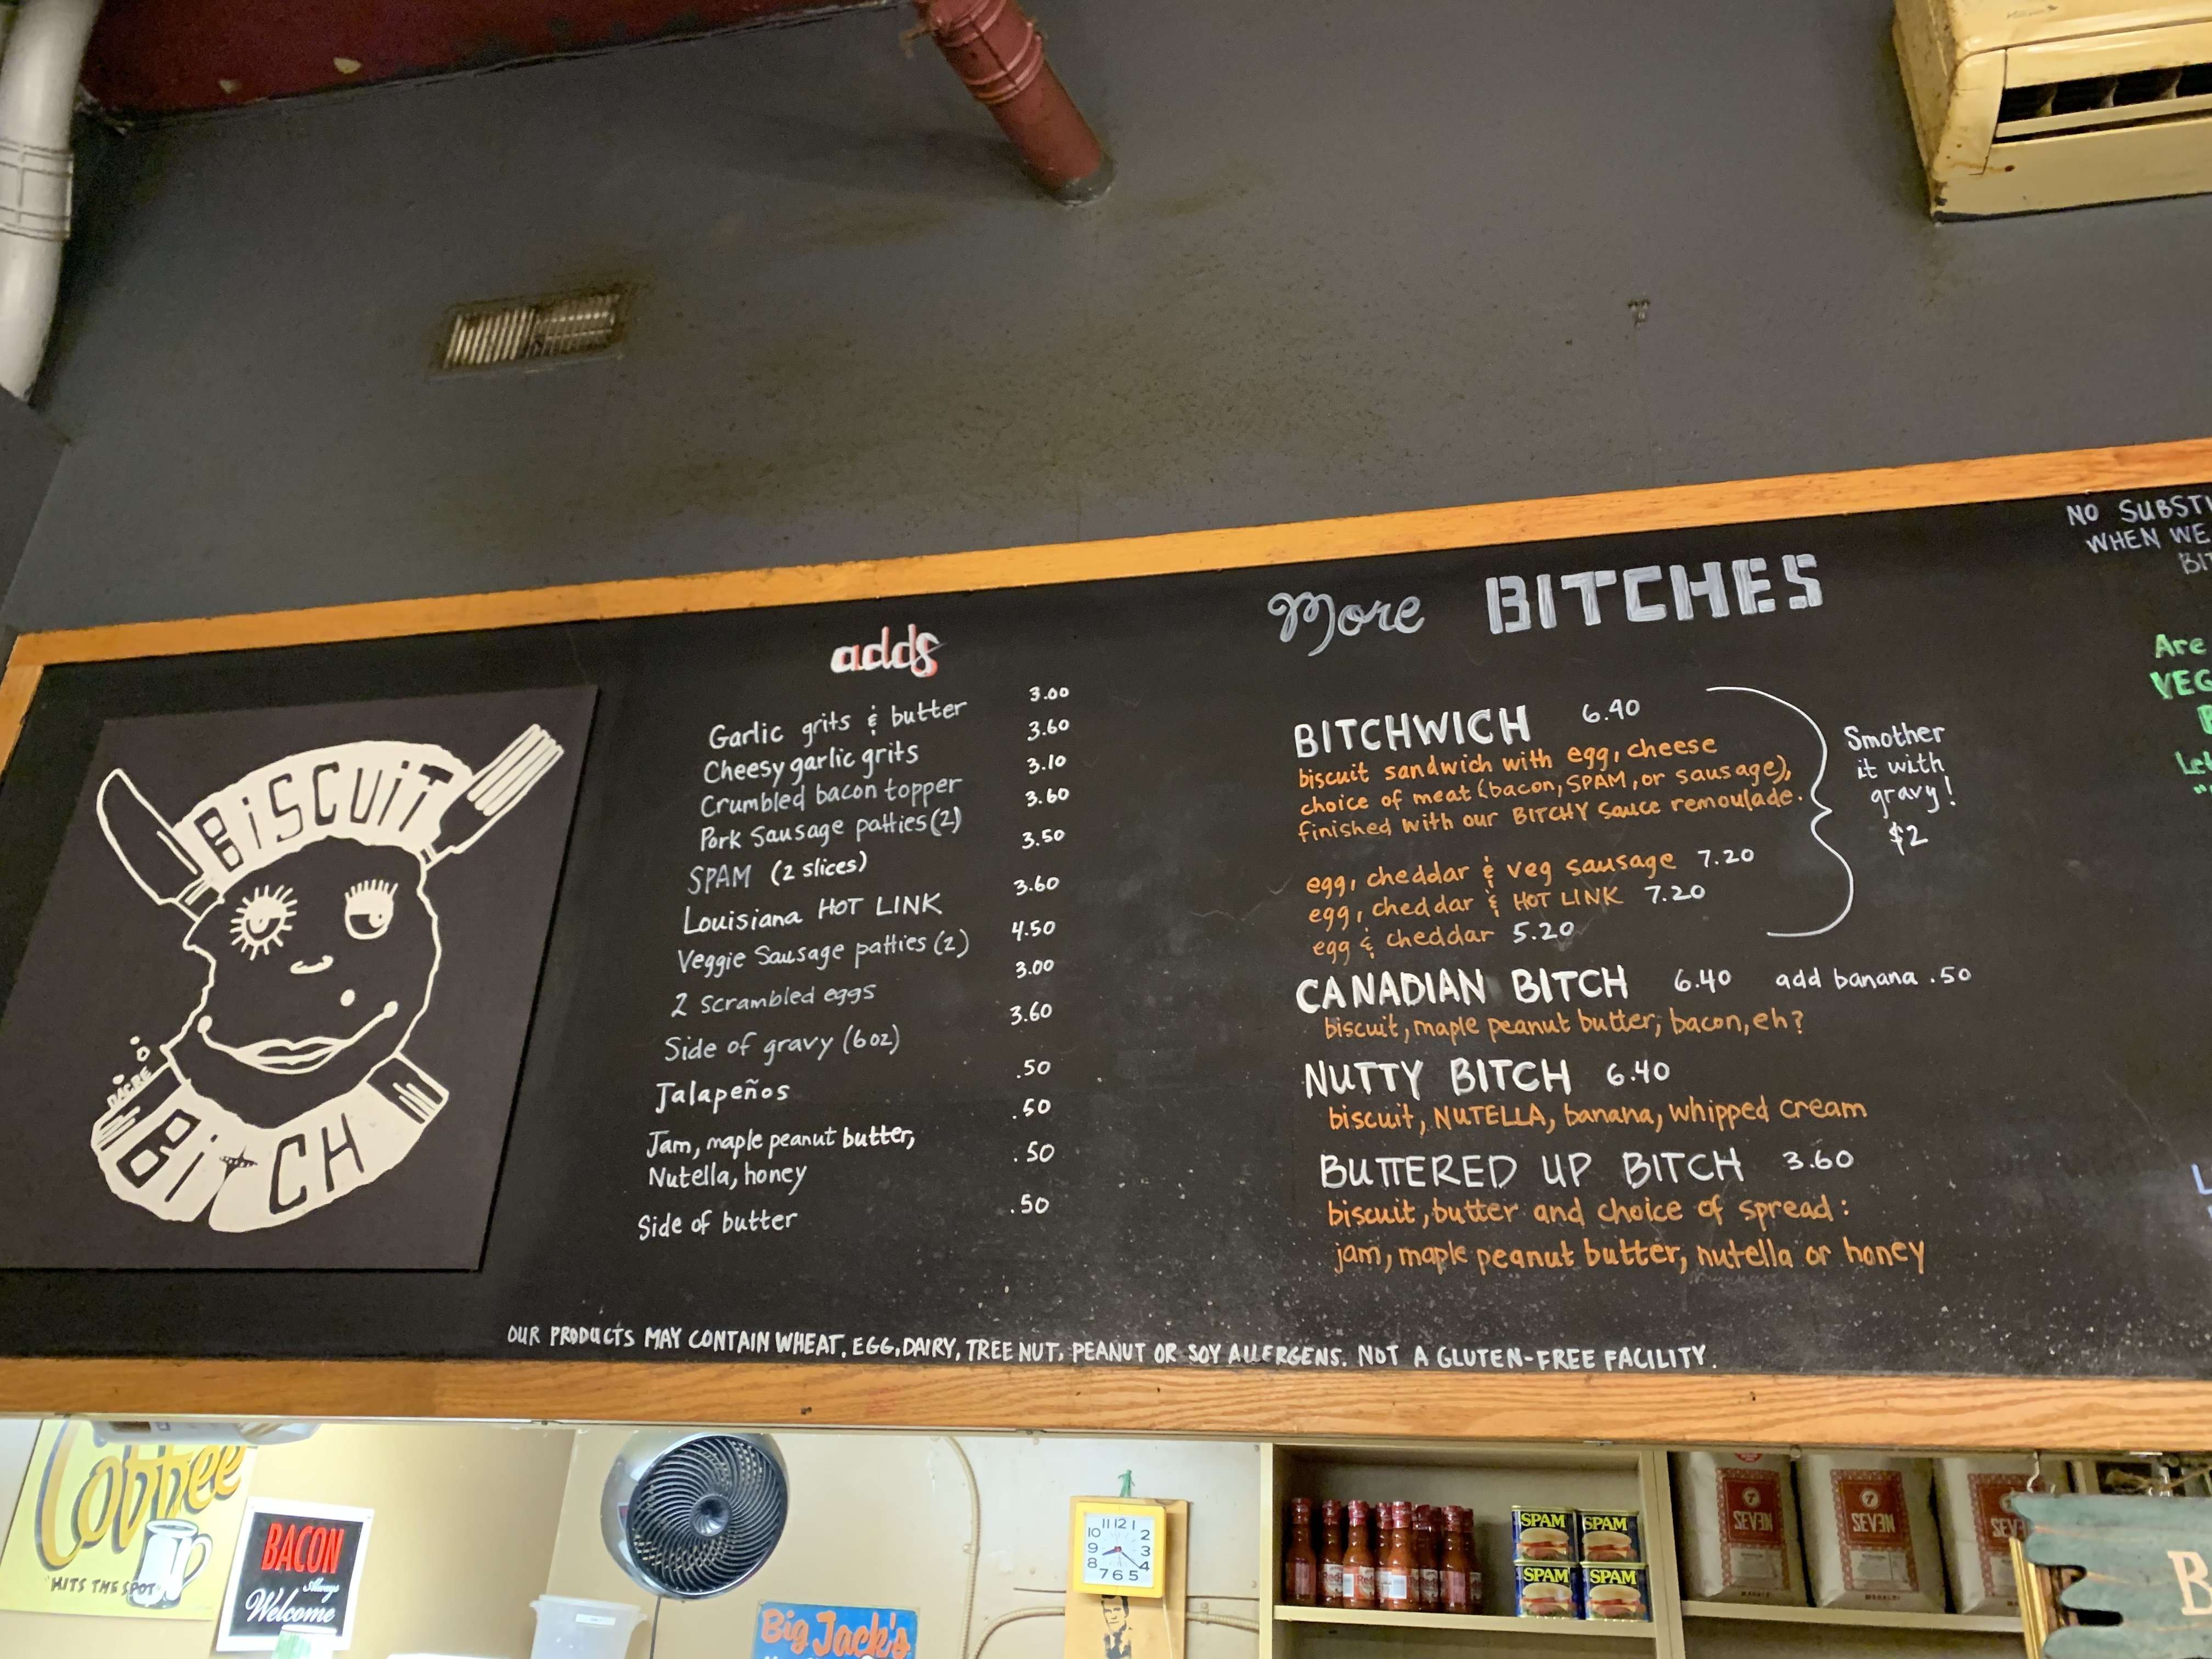 BISCUIT
BITCH
DACRE
adds
Garlic grits & butter 3.00
Cheesy garlic grits 3.60
Crumbled bacon topper 3.10
Pork Sausage patties (2) 3.60
SPAM (2 slices) 3.50
Louisiana HOT LINK 3.60
Veggie Sausage patties (2) 4.50
2 scrambled eggs 3.00
Side of gravy (6oz) 3.60
Jalapeños .50
Jam, maple peanut butter, .50
Nutella, honey .50
Side of butter .50
More BITCHES
BITCHWICH 6.40
biscuit sandwich with egg, cheese
choice of meat (bacon, SPAM, or sausage),
finished with our BITCHY sauce remoulade.
egg, cheddar & veg sausage 7.20
egg, cheddar & HOT LINK 7.20
egg & cheddar 5.20
Smother
it with
gravy!
$2
CANADIAN BITCH 6.40 add banana .50
biscuit, maple peanut butter, bacon, eh?
NUTTY BITCH 6.40
biscuit, NUTELLA, banana, whipped cream
BUTTERED UP BITCH 3.60
biscuit, butter and choice of spread:
jam, maple peanut butter, nutella or honey
NO SUBSTI
WHEN WE
BIT
Are
VEG
Let
OUR PRODUCTS MAY CONTAIN WHEAT, EGG, DAIRY, TREE NUT, PEANUT OR SOY ALLERGENS. NOT A GLUTEN-FREE FACILITY.
Coffee
HITS THE SPOT
BACON
Always
Welcome
Big Jack's
11 12 1
10 2
9 3
8 4
7 6 5
SPAM SPAM
SPAM SPAM
SEVEN SEVEN SEV
B